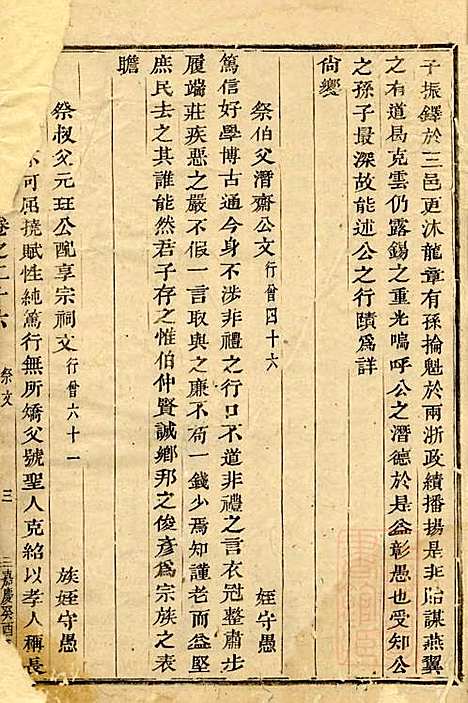 子振鐸於三邑更沐龍章有孫掄魁於兩浙政績播揚是非貽謀燕翼
之有道曷克雲仍露錫之重光嗚呼公之潛德於是益彰愚也受知公
之孫子最深故能述公之行蹟爲詳
尙饗
祭伯父潛齋公文 行曾四十六 姪守愚
篤信好學博古通今身不涉非禮之行口不道非禮之言衣冠整肅步
履端莊疾惡之嚴不假一言取與之廉不苟一錢少焉知謹老而益堅
庶民去之其誰能然君子存之惟伯仲賢誠鄉邦之俊彥爲宗族之表
瞻
祭叔父元玨公配享宗祠文 行曾六十一 族姪守愚
不可屈撓賦性純篤行無所矯父號聖人克紹以孝人稱長
卷之二十六 祭文 三 嘉慶癸酉